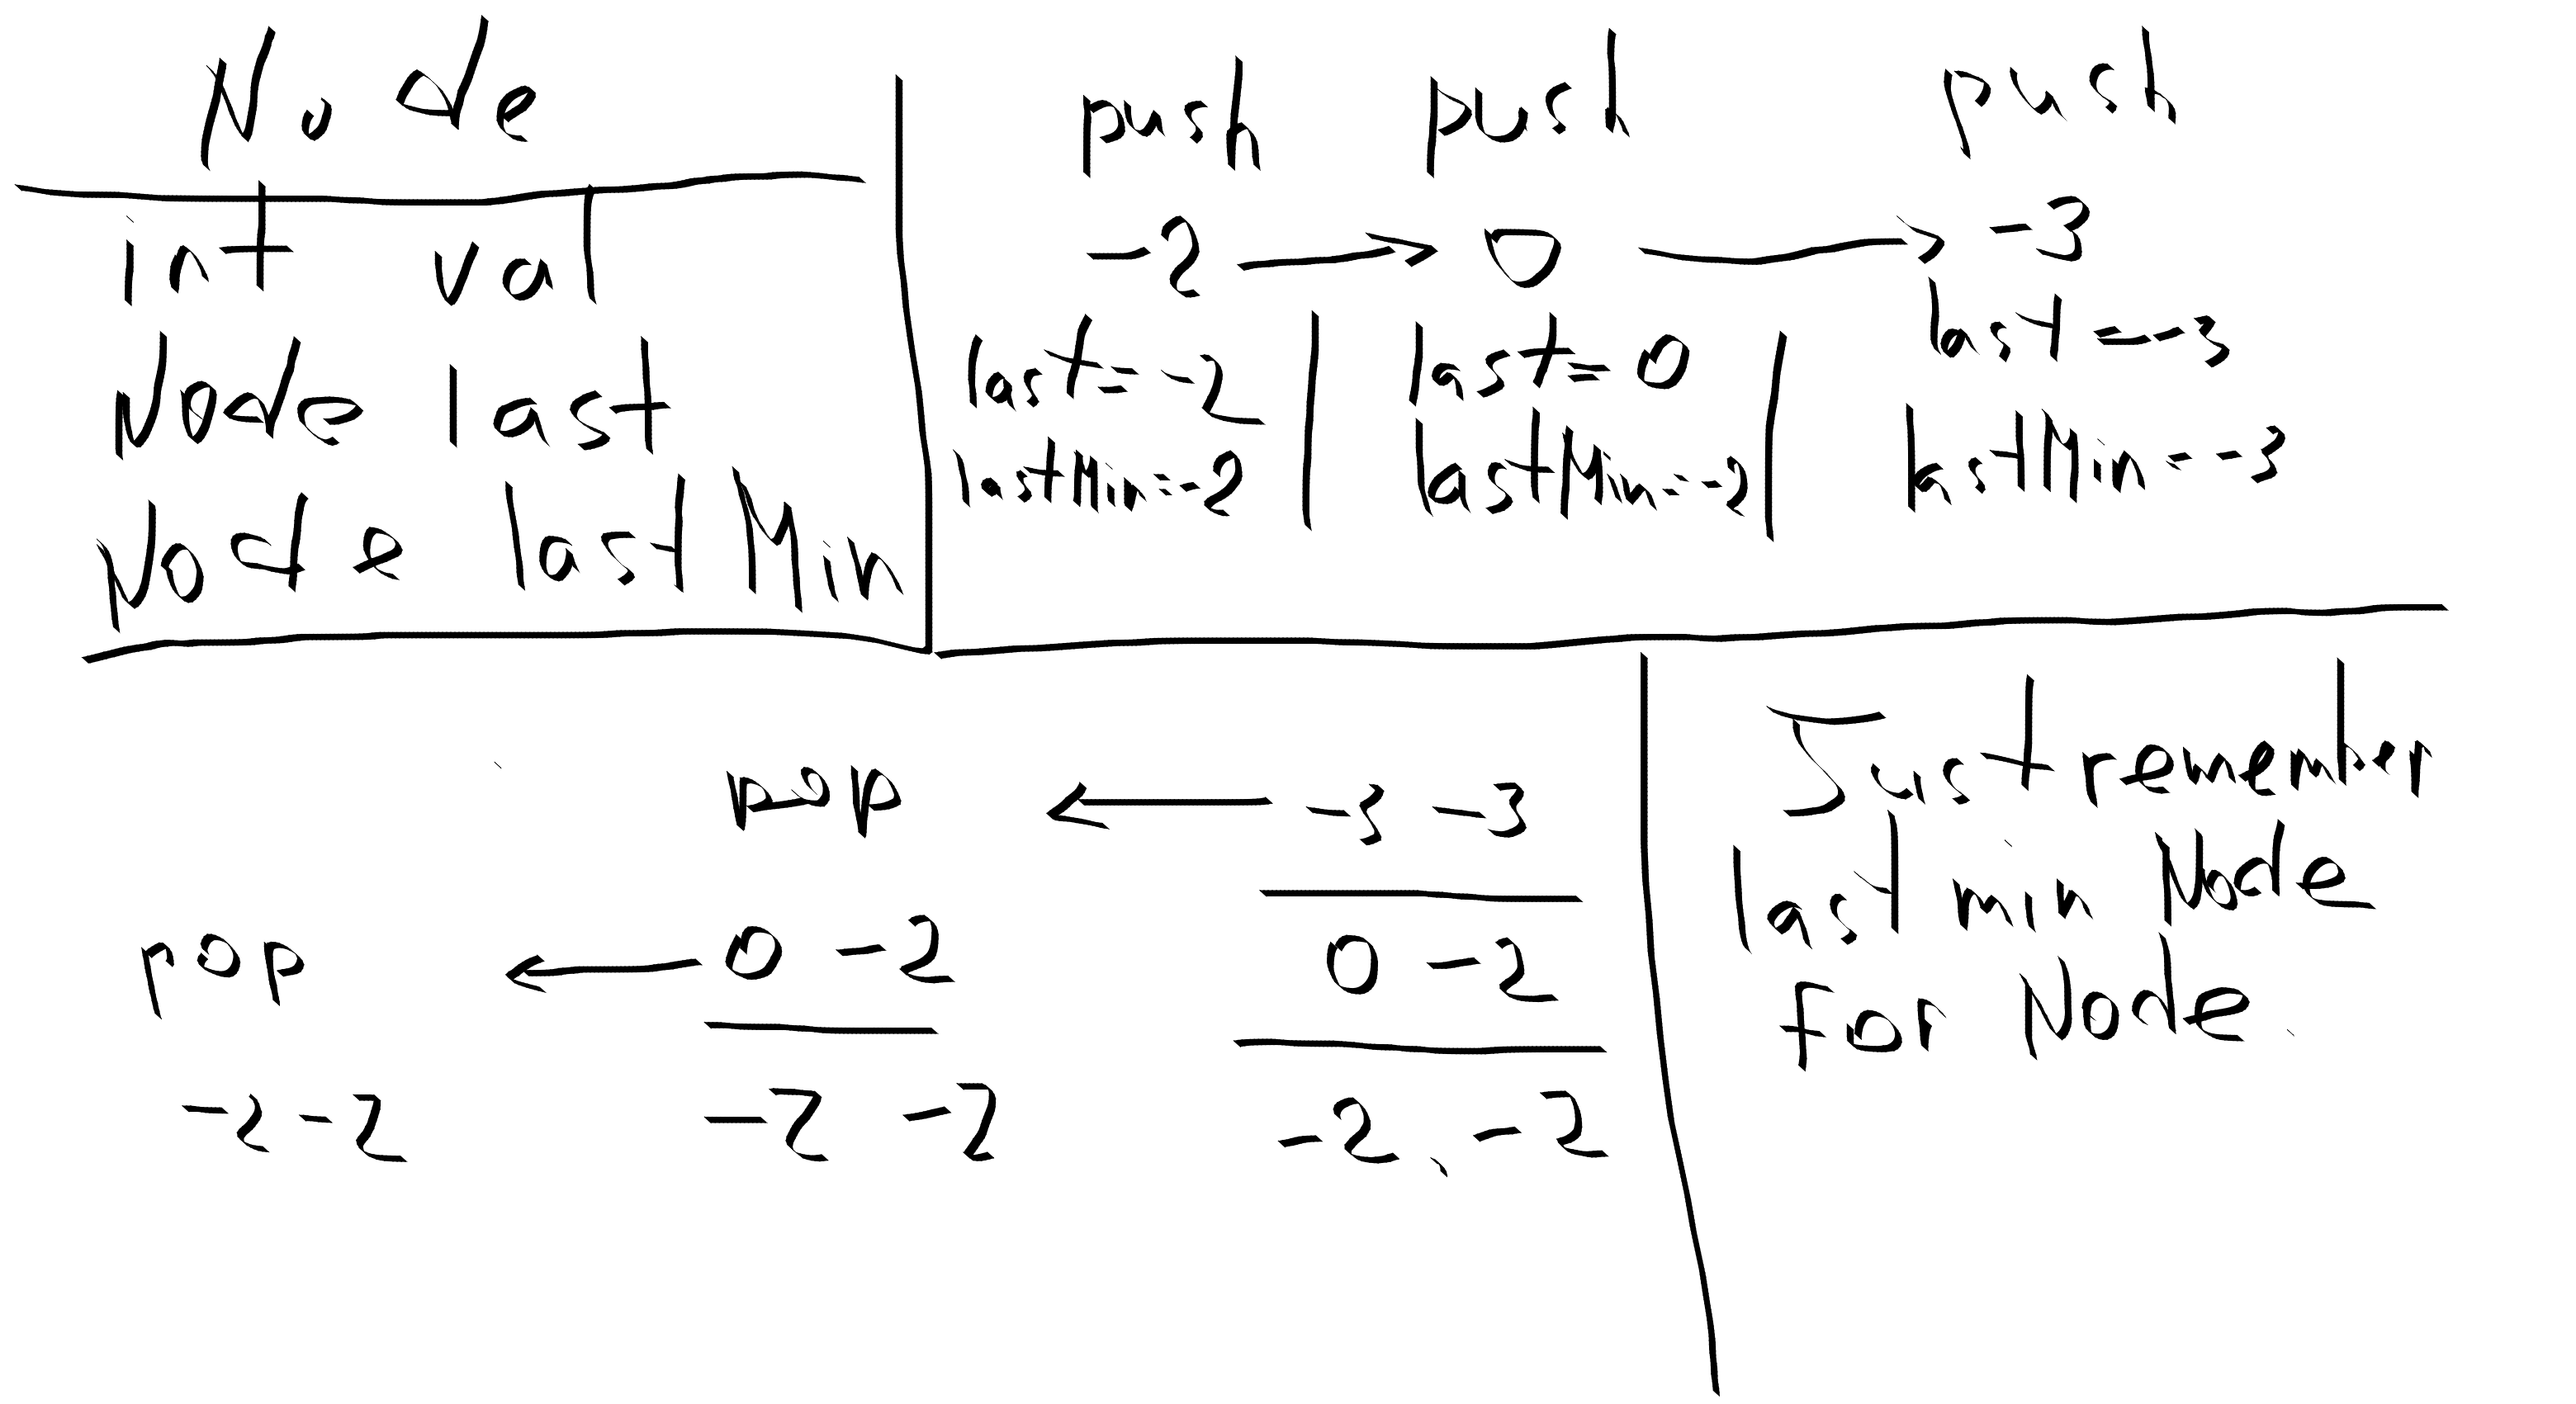 Node
int val
Node last
Node lastMin
push push push
-2 → 0 → -3
last=-2 | last=0 | last=-3
lastMin=-2 | lastMin=-2 | lastMin=-3
pop ← -3 -3
pop ← 0 -2 0 -2
-2 -2 -2 -2 -2, -2
Just remember
last min Node
for Node.